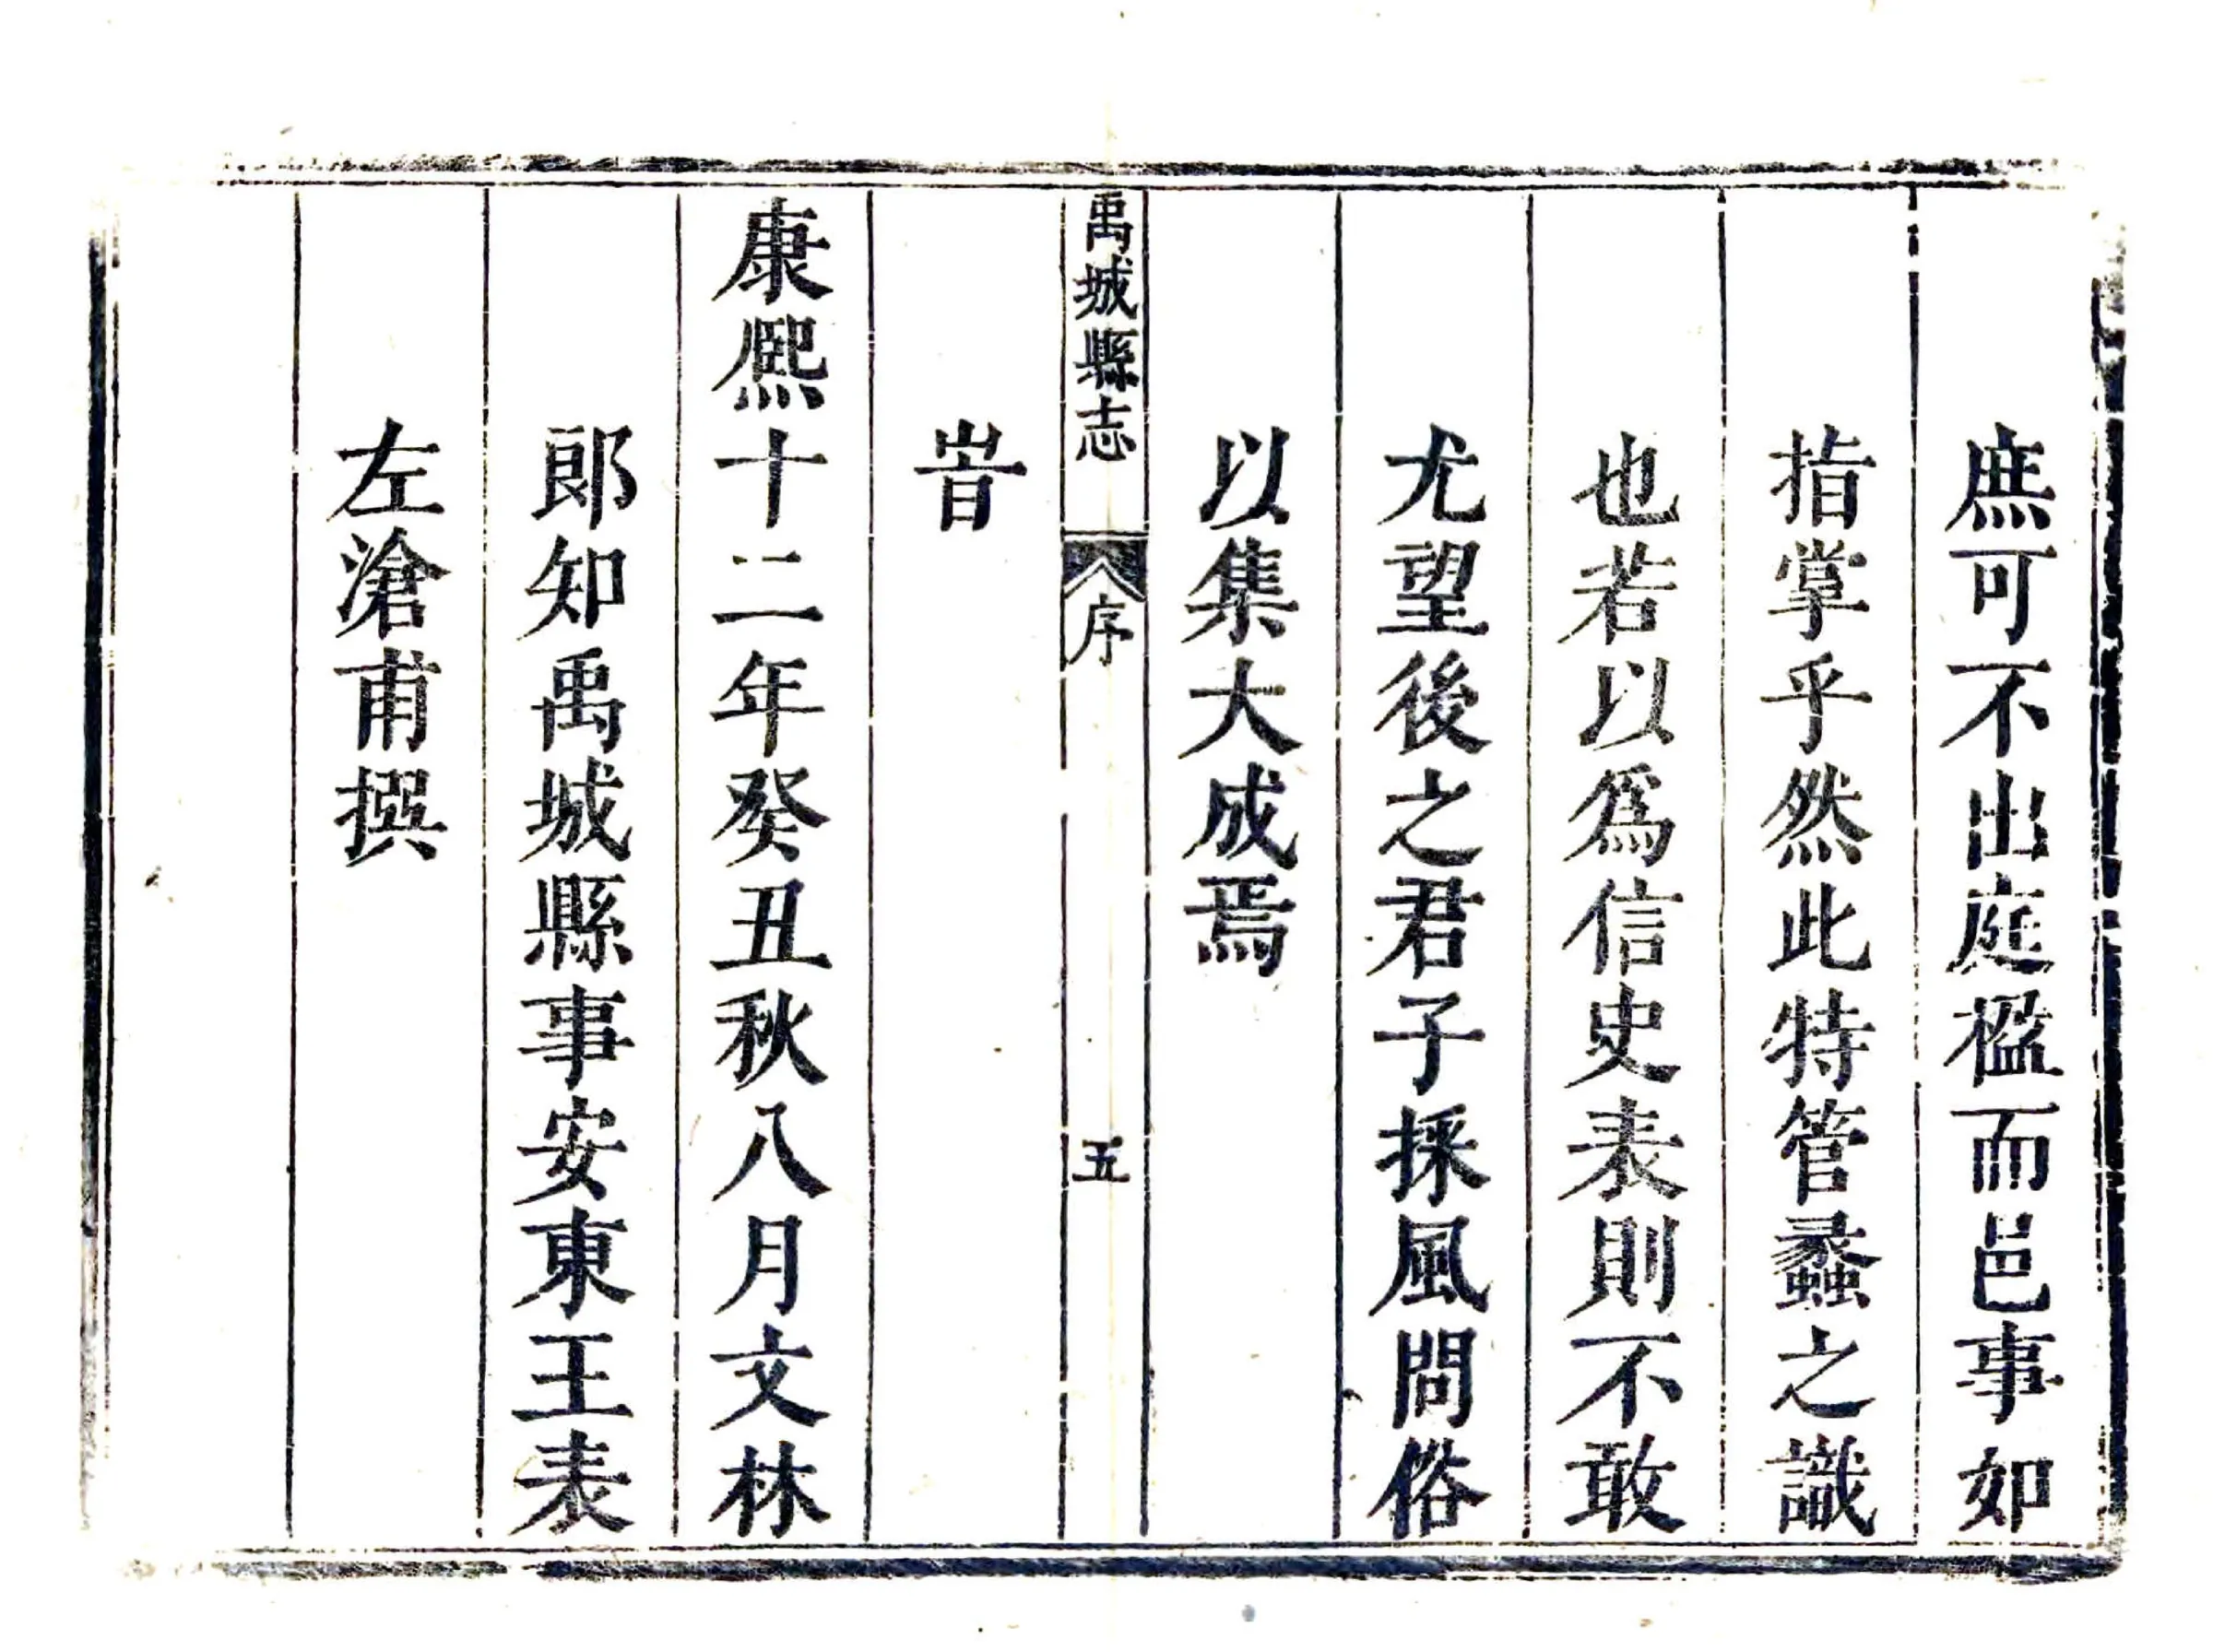 庶可不出庭楹而邑事如
指掌乎然此特管蠡之識
也若以爲信史表則不敢
尤望後之君子採風問俗
以集大成焉
禹城縣志
序
五
旹
康熙十二年癸丑秋八月文林
郎知禹城縣事安東王表
左滄甫撰